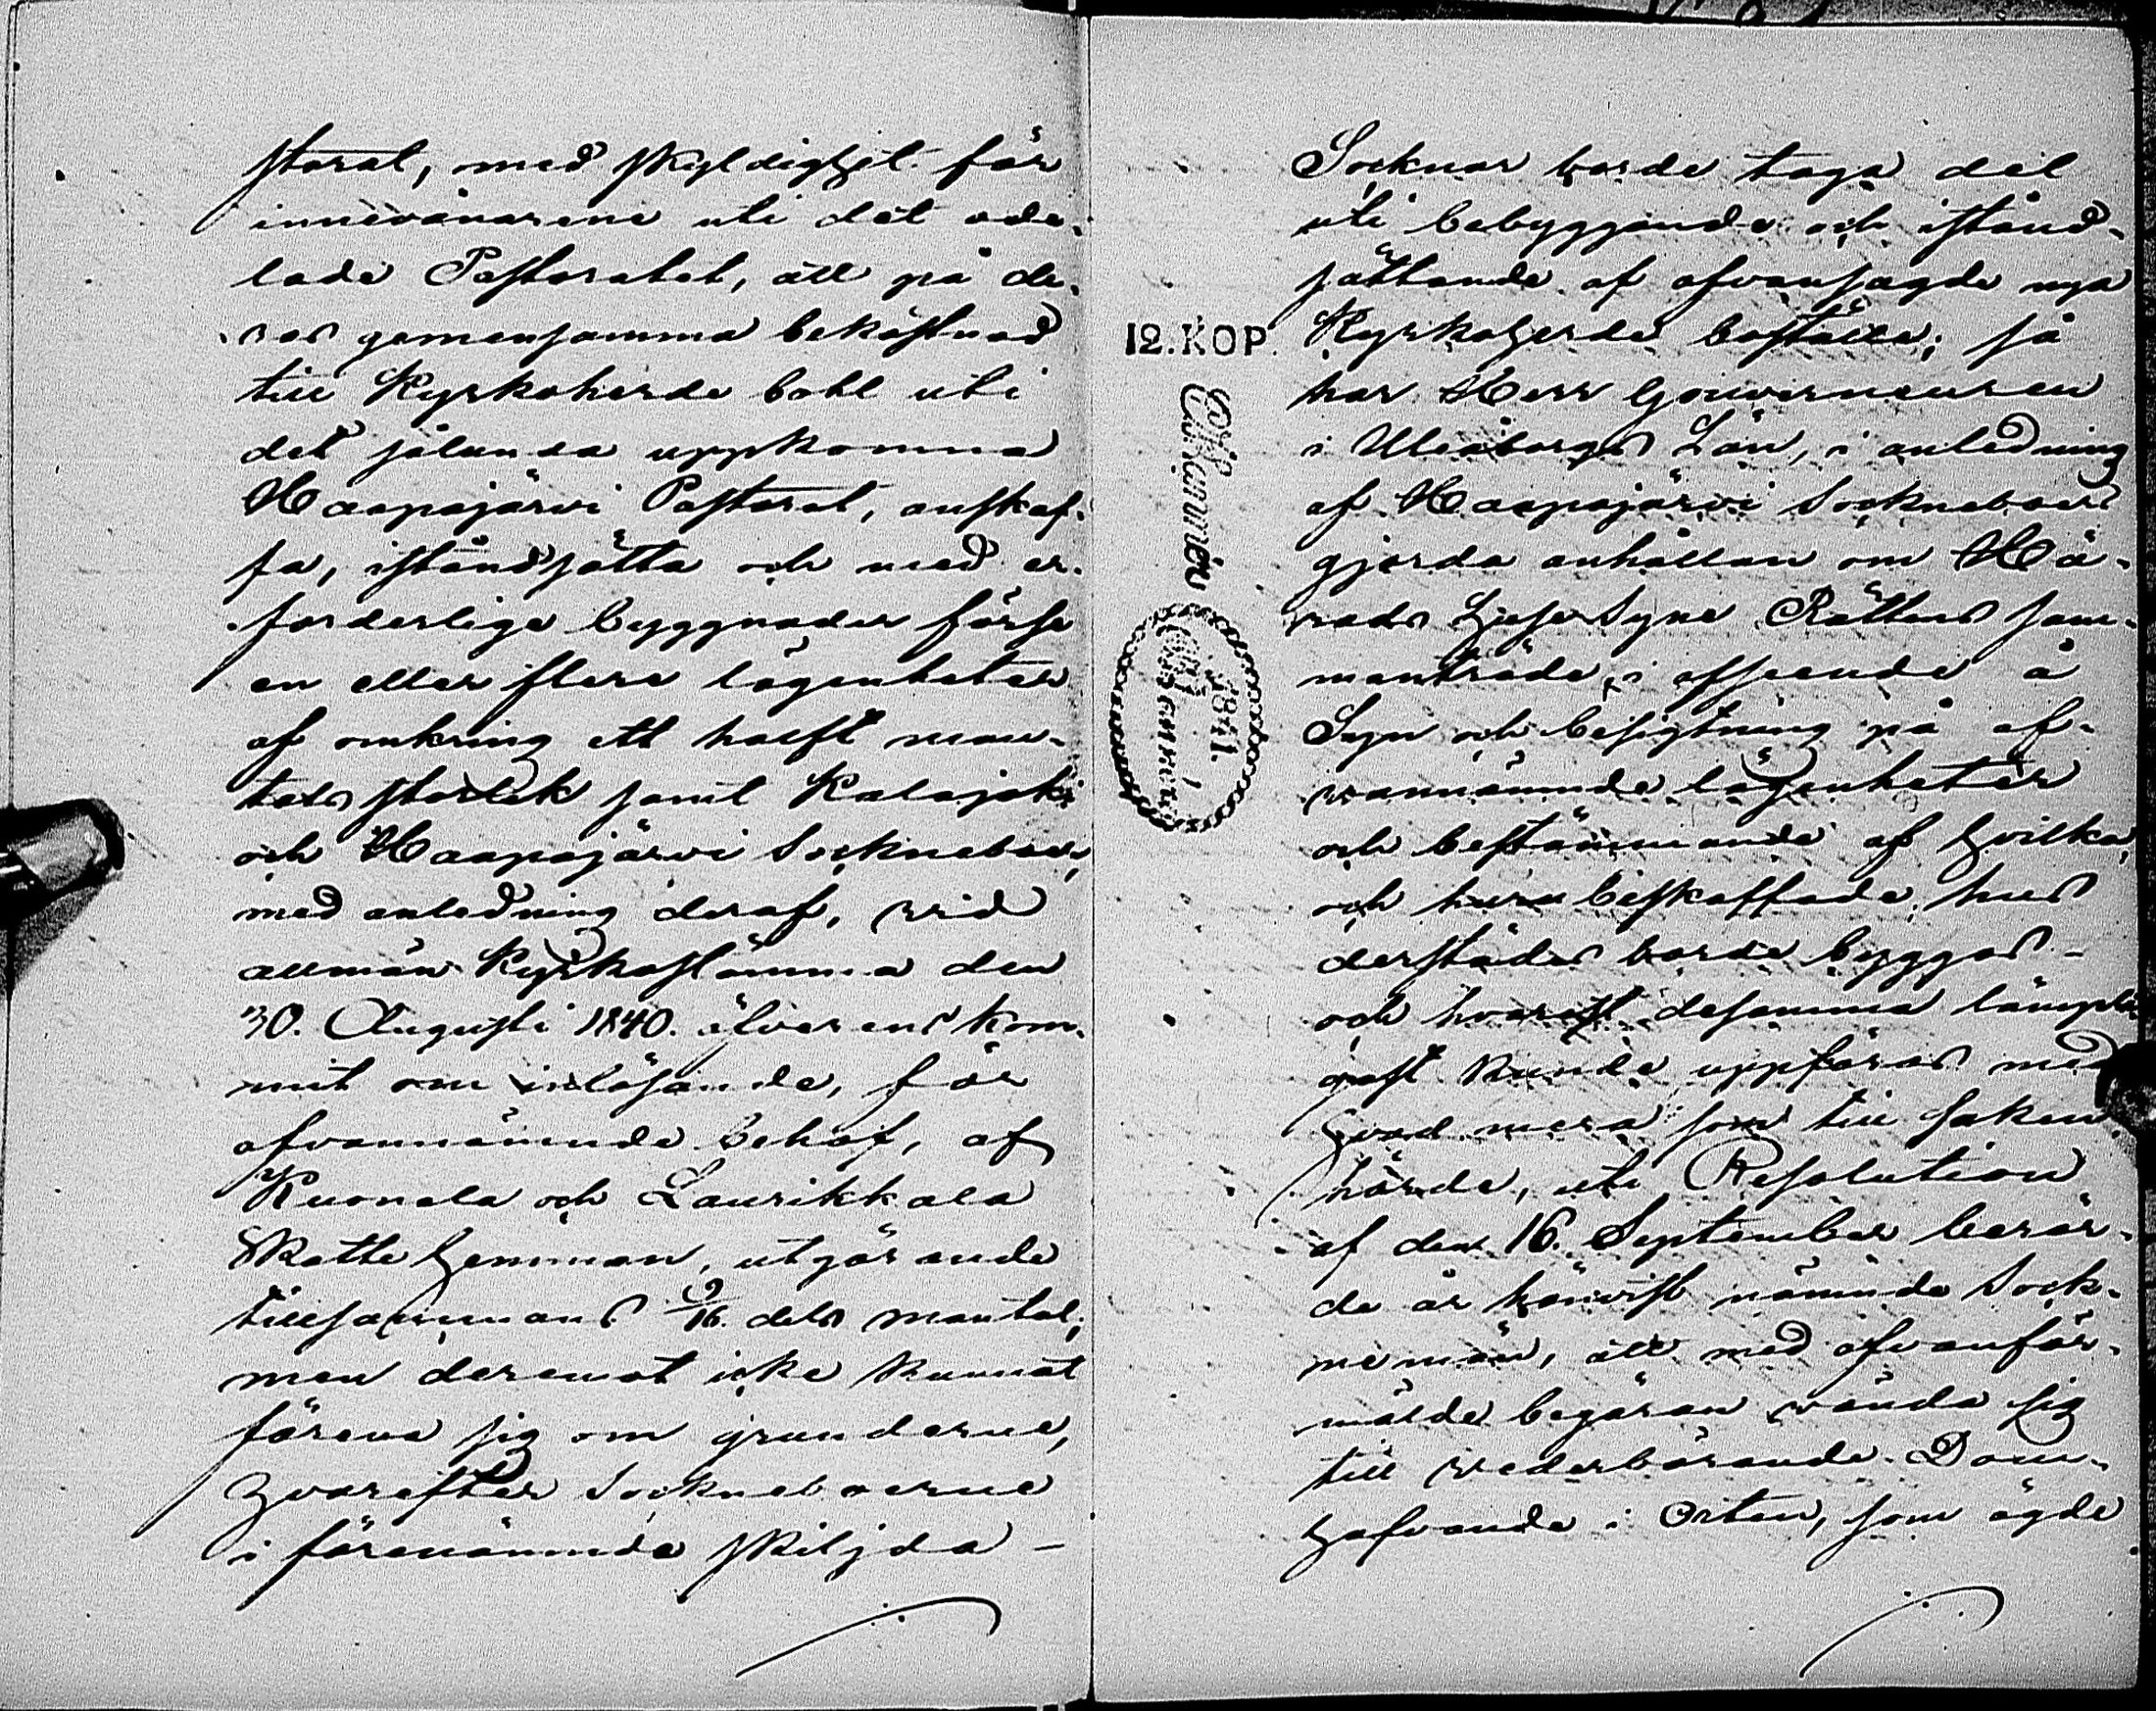 storat, med skyldighet för
innevånarene uti det ode-
lade Pastoratet, att på de-
ras gemensamma bekostnad
till Kyrkoherde bohl uti
det sålunda uppkomna
Haapajärvi Pastorat, anskaf-
fa, iståndsätta och med er-
forderlige byggnader förse
en eller flere lägenheter
af omkring ett halft man-
tals storlek samt Kalajoki
och Haapajärvi Sockneboer,
med anledning deraf, vid
allmän Kyrkostämma den
30. Augusti 1840. öfverens kom-
mit om inlösande, för
ofvannämnde behof, af
Kuonala och Laurikkala
Skatte hemman, utgörande
tillsammans 9/16. dels mantal,
men deremot icke kunnat
förena sig om grunderne,
hvarefter Sockneboerne
i förenämnde skiljda
Socknar borde taga del
uti bebyggande och istånd-
sättande af ofvansagde nya
12. KOP. Kyrkoherde boställe; så
har Herr Gouverneuren
i Uleåborgs Län, i anledning
af Haapajärvi Sockneboers
gjorda anhållan om Hä-
rads Husesyne Rättens sam-
manträde, i afseende å
Syn och besigtning på of-
vannämnde lägenheter
och bestämmande af hvilka
och huru beskaffade hus
derstädes borde byggas
och hvarest desamma lämpli-
gast kunde uppföras med
hvad mera som till saken
hörde, uti Resolution
af den 16. September berör-
de år hänvist nämnde Sock-
nemän, att med ofvanför-
mälde begäran vända sig
till vederbörande Dom-
hafvande i Orten, som ägde
1841.